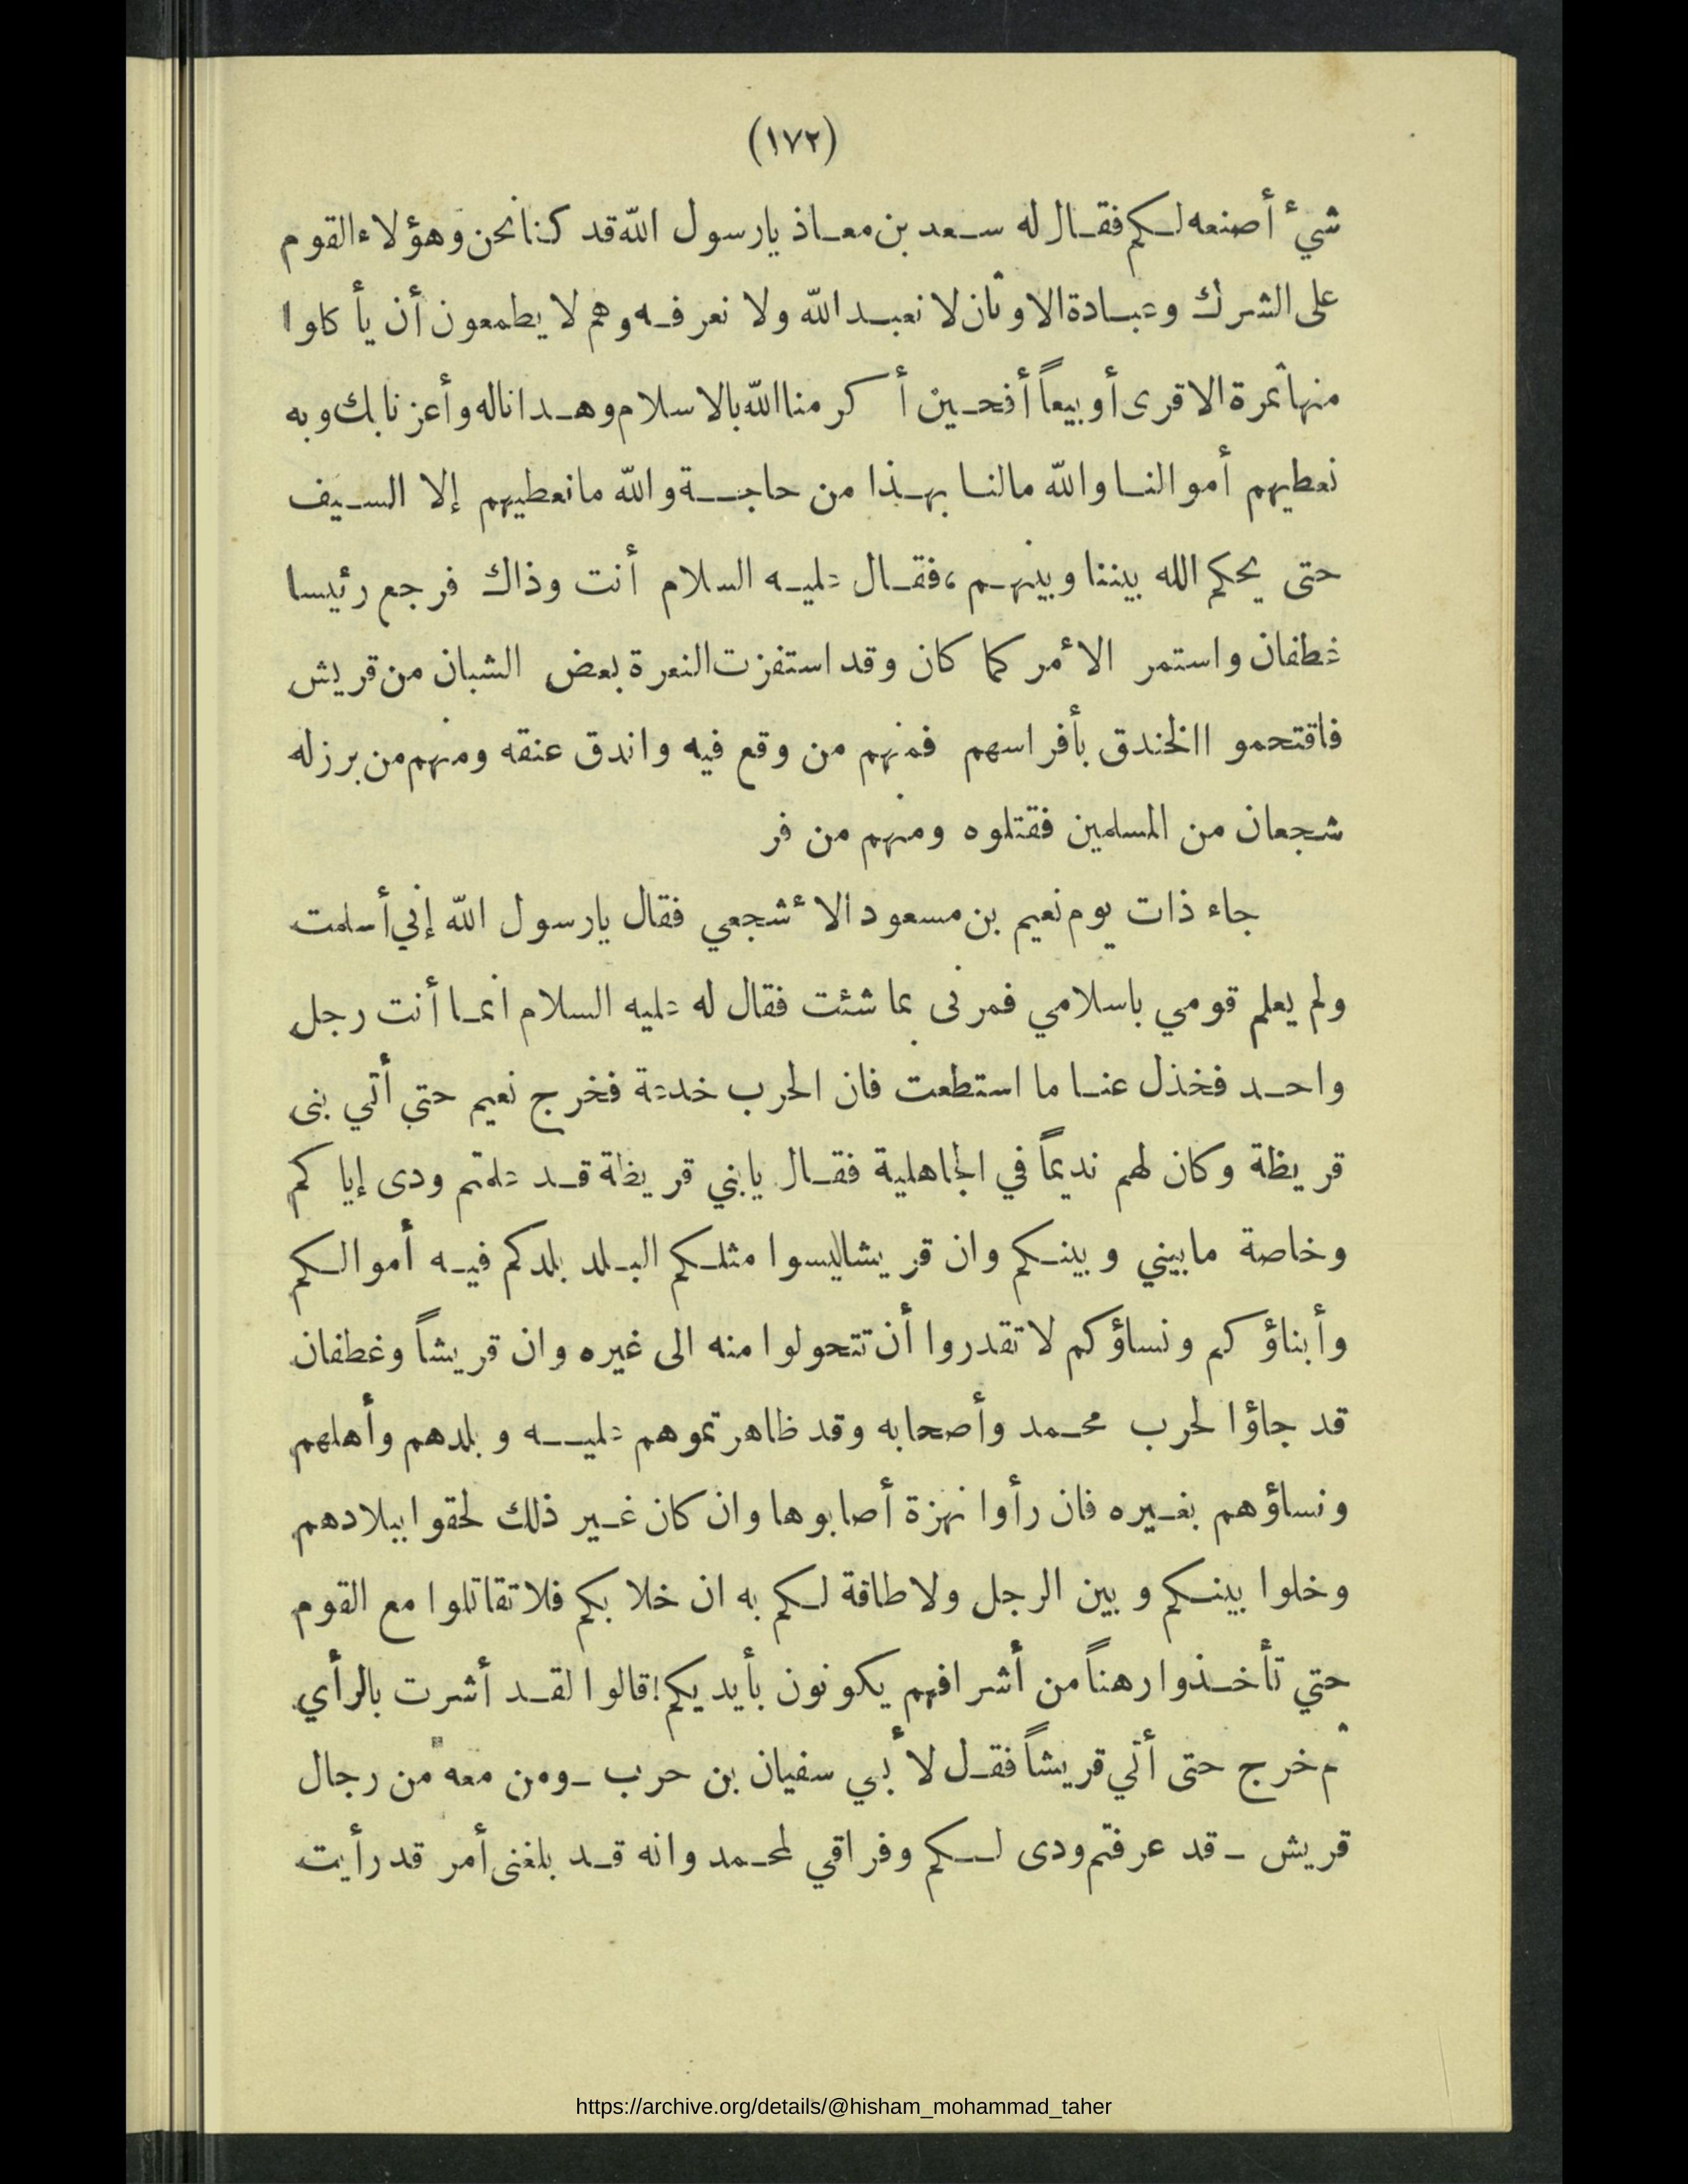 (١٧٢)
شيء أصنعه لكم فقال له سعد بن معاذ يارسول الله قد كنا نحن وهؤلاء القوم
على الشرك وعبادة الاوثان لا نعبد الله ولا نعرفه وهم لا يطمعون أن يأكلوا
منها ثمرة الا قرى أو بيعاً أفحين أكرمنا الله بالاسلام وهدانا له وأعزنا بك وبه
نعطيهم أموالنا والله مالنا بهذا من حاجة والله مانعطيهم إلا السيف
حتى يحكم الله بيننا وبينهم، فقال عليه السلام أنت وذاك فرجع رئيسا
غطفان واستمر الأمر كما كان وقد استفزت النعرة بعض الشبان من قريش
فاقتحموا الخندق بأفراسهم فمنهم من وقع فيه واندق عنقه ومنهم من برز له
شجعان من المسلمين فقتلوه ومنهم من فر
جاء ذات يوم نعيم بن مسعود الأشجعي فقال يارسول الله إني أسلمت
ولم يعلم قومي باسلامي فمرنى بما شئت فقال له عليه السلام انما أنت رجل
واحد فخذل عنا ما استطعت فان الحرب خدعة فخرج نعيم حتي أتي بنى
قريظة وكان لهم نديماً في الجاهلية فقال يابني قريظة قد علمتم ودى إياكم
وخاصة مابيني وبينكم وان قريشا ليسوا مثلكم البلد بلدكم فيه أموالكم
وأبناؤكم ونساؤكم لا تقدروا أن تتحولوا منه الى غيره وان قريشاً وغطفان
قد جاؤا لحرب محمد وأصحابه وقد ظاهرتموهم عليه وبلدهم وأهلهم
ونساؤهم بغيره فان رأوا نهزة أصابوها وان كان غير ذلك لحقوا ببلادهم
وخلوا بينكم وبين الرجل ولا طاقة لكم به ان خلا بكم فلا تقاتلوا مع القوم
حتي تأخذوا رهناً من أشرافهم يكونون بأيديكم! قالوا لقد أشرت بالرأي
ثم خرج حتى أتي قريشاً فقل لأبي سفيان بن حرب ـ ومن معه من رجال
قريش ـ قد عرفتم ودى لكم وفراقي لمحمد وانه قد بلغنى أمر قد رأيت
https://archive.org/details/@hisham_mohammad_taher